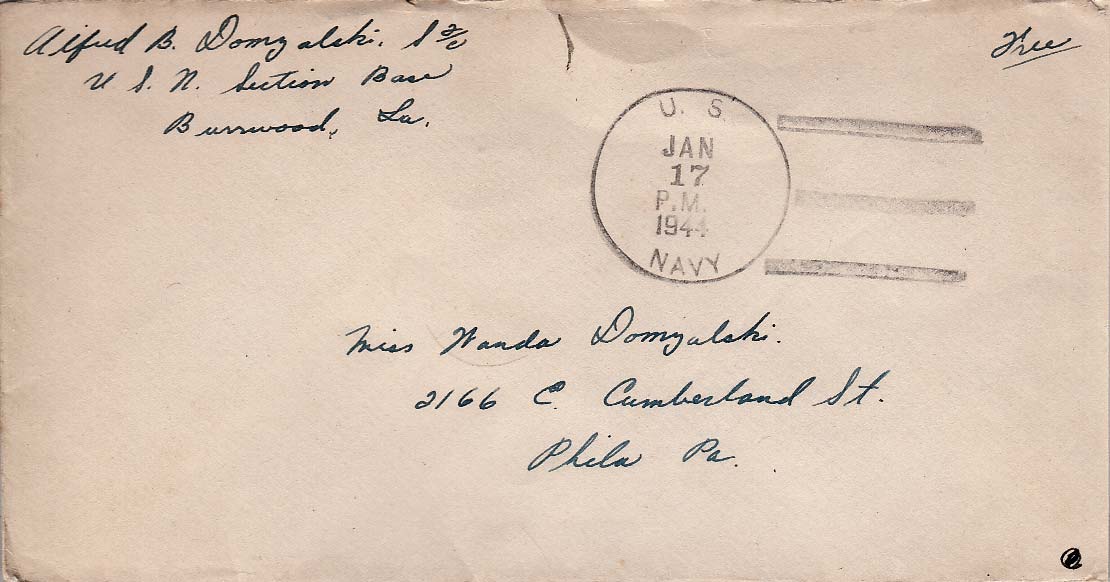 Alfred B. Domzalski. S 2/c
U. S. N. Section Base
Burrwood, La.
Free
U. S.
JAN
17
P.M.
1944
NAVY
Miss Wanda Domzalski.
2166 E. Cumberland St.
Phila Pa.